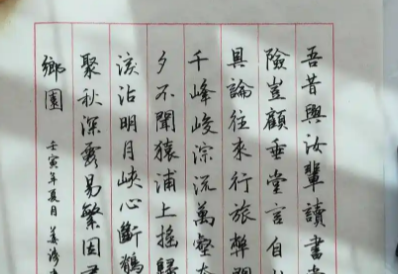 吾昔與汝輩讀書
險豈顧垂堂言自
具論往來行旅弊
千峰峻淙流萬壑
夕不聞猿浦上搖
淚沾明月峽心斷鶺
聚秋深雲易繁因
鄉園
壬寅年夏月 姜